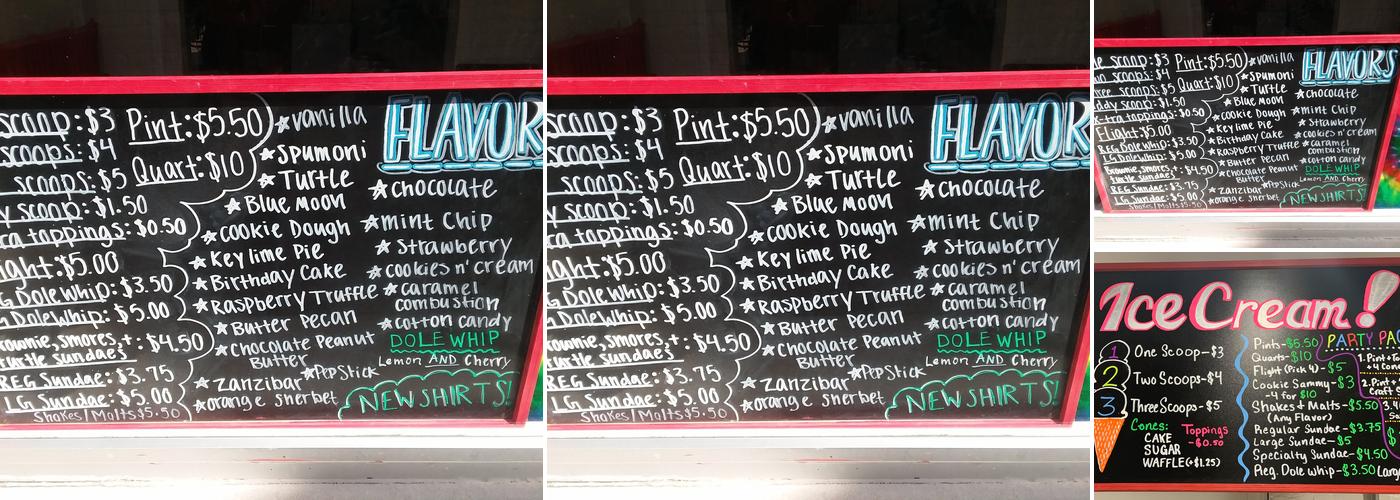 scoop: $3
scoops: $4
scoops: $5
scoop: $1.50
toppings: $0.50
$5.00
Dole Whip: $3.50
Dole Whip: $5.00
smores, + $4.50
turtle sundaes
REG Sundae: $3.75
LG Sundae: $5.00
Shakes/Malts $5.50
Pint: $5.50
Quart: $10
vanilla
Spumoni
Turtle
Blue Moon
Cookie Dough
Key lime Pie
Birthday Cake
Raspberry Truffle
Butter Pecan
Chocolate Peanut
Butter
PopStick
Zanzibar
orange sherbet
FLAVOR
Chocolate
mint Chip
Strawberry
cookies n' cream
caramel
combustion
cotton candy
DOLE WHIP
Lemon AND Cherry
NEW SHIRTS!
scoop: $3
scoops: $4
scoops: $5
scoop: $1.50
toppings: $0.50
$5.00
Dole Whip: $3.50
Dole Whip: $5.00
smores, + $4.50
turtle sundaes
REG Sundae: $3.75
LG Sundae: $5.00
Shakes/Malts $5.50
Pint: $5.50
Quart: $10
vanilla
Spumoni
Turtle
Blue Moon
Cookie Dough
Key lime Pie
Birthday Cake
Raspberry Truffle
Butter Pecan
Chocolate Peanut
Butter
PopStick
Zanzibar
orange sherbet
FLAVOR
Chocolate
mint Chip
Strawberry
cookies n' cream
caramel
combustion
cotton candy
DOLE WHIP
Lemon AND Cherry
NEW SHIRTS!
scoop: $3
scoops: $4
scoops: $5
scoop: $1.50
toppings: $0.50
Flight: $5.00
REG Dole Whip: $3.50
LG Dole Whip: $5.00
Brownie, smores, + $4.50
turtle sundaes
REG Sundae: $3.75
LG Sundae: $5.00
Shakes/Malts $5.50
Pint: $5.50
Quart: $10
vanilla
Spumoni
Turtle
Blue Moon
Cookie Dough
Key lime Pie
Birthday Cake
Raspberry Truffle
Butter Pecan
Chocolate Peanut
Butter
PopStick
Zanzibar
orange sherbet
FLAVORS
Chocolate
mint Chip
Strawberry
cookies n' cream
caramel
combustion
cotton candy
DOLE WHIP
Lemon AND Cherry
NEW SHIRTS!
Ice Cream!
1 One Scoop-$3
2 Two Scoops-$4
3 Three Scoops-$5
Cones:
CAKE
SUGAR
WAFFLE (+$1.25)
Toppings
-$0.50
Pints-$5.50
Quarts-$10
Flight (Pick 4)-$5
Cookie Sammy-$3
-4 for $10
Shakes & Malts-$5.50
(Any Flavor)
Regular Sundae-$3.75
Large Sundae-$5
Specialty Sundae-$4.50
Reg. Dole Whip-$3.50
PARTY
1. Pint +
2. Pint